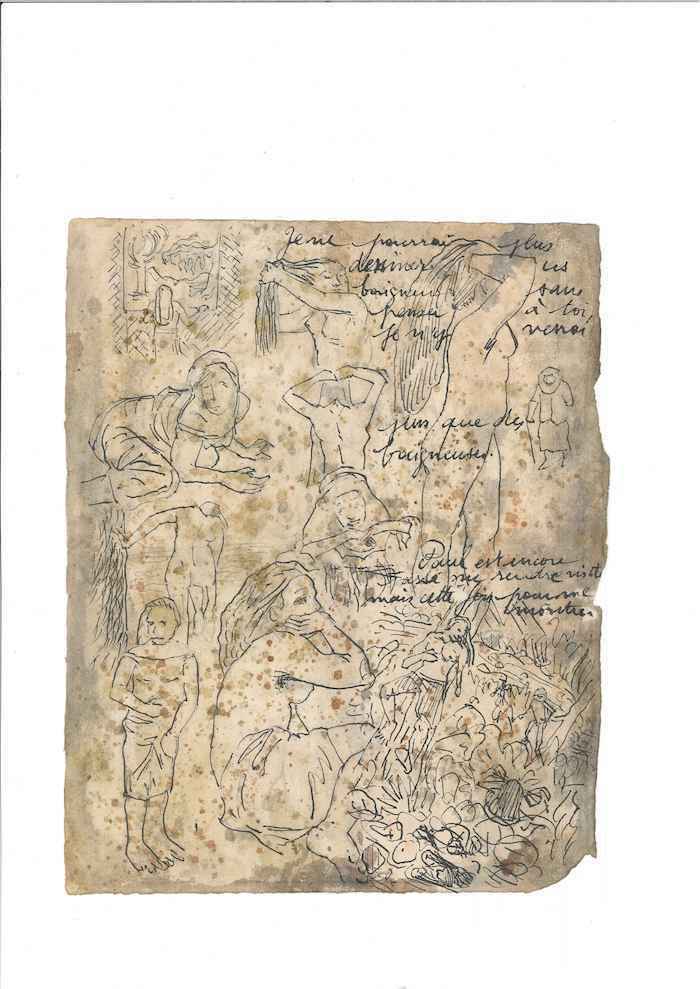 Je ne pourrai plus
dessiner us
baigneur sans
penser à toi,
Je n'y verrai
plus que des
baigneuses.
Paul est encore
passé me rendre visite
mais cette fois pour me
montrer